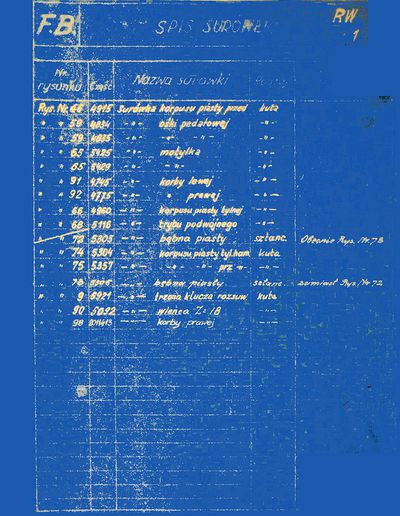 F.B.
SPIS SURÓWEK
RW
1
Nr. rysunku Część Nazwa surówki
Rys. Nr. 66 4915 Surówka korpusu piasty przed kuta
" " 59 4834 -"- ośki pedałowej -"-
" " 59 4835 -"- " " -"-
" " 65 5425 -"- motylka -"-
" " 65 5429 -"- " -"-
" " 91 4745 -"- korby lewej -"-
" " 92 4775 -"- " prawej -"-
" " 66 4960 -"- korpusu piasty tylnej -"-
" " 68 5116 -"- trybu podwójnego -"-
" " 72 5305 -"- bębna piasty sztanc. Obecnie Rys. Nr. 78
" " 74 5304 -"- korpusu piasty tyl.ham. kuta
" " 75 5357 -"- " " prz -"- -"-
" " 78 -"- bębna piasty sztanc. zamiast Rys. Nr 72
" " 9 5921 -"- trzpna klucza rozsuw. kuta
90 5092 -"- wieńca Z=18 -"-
98 -"- korby prawej